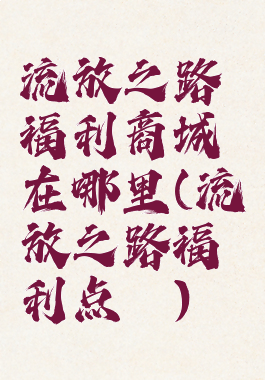 流放之路
福利商城
在哪里(流
放之路福
利点 )